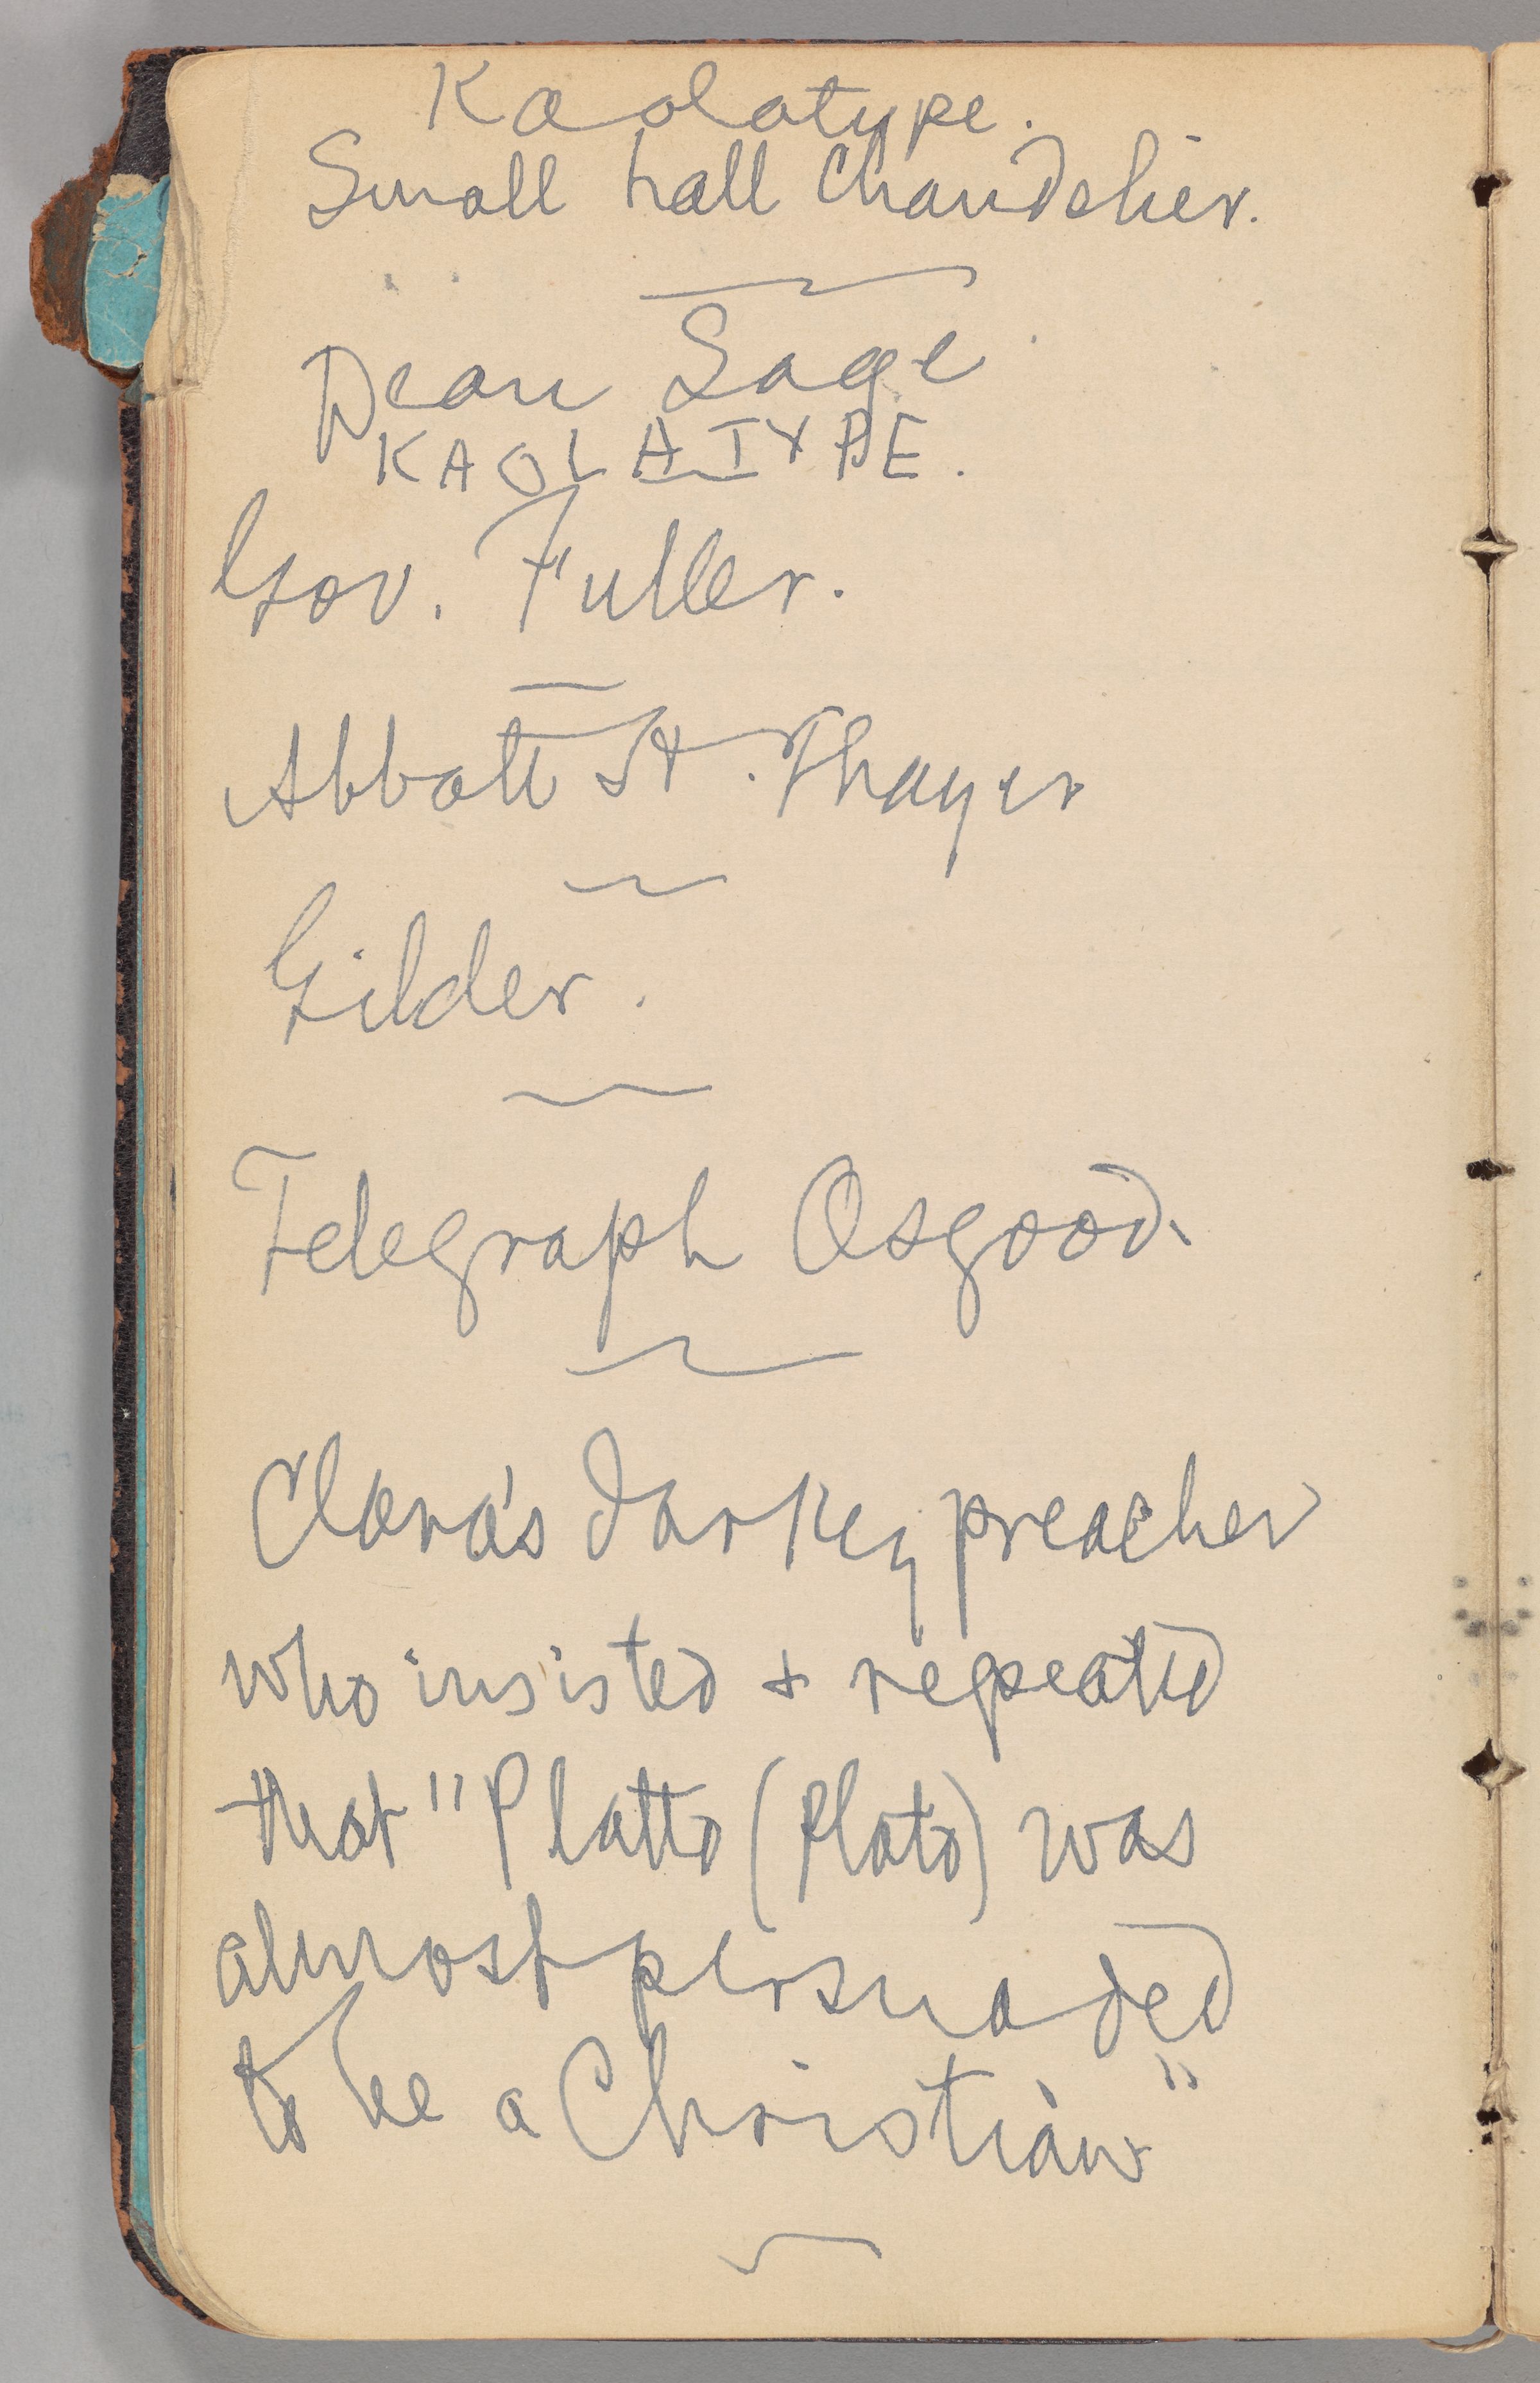 Kaolatype.
Small hall Chandelier.
Dean Sage
KAOLATYPE.
Gov. Fuller.
Abbott H. Thayer
Gilder.
Telegraph Osgood.
Clara's darkey preacher
who insisted & repeated
that "Platto (Plato) was
almost persuaded
to be a Christian"